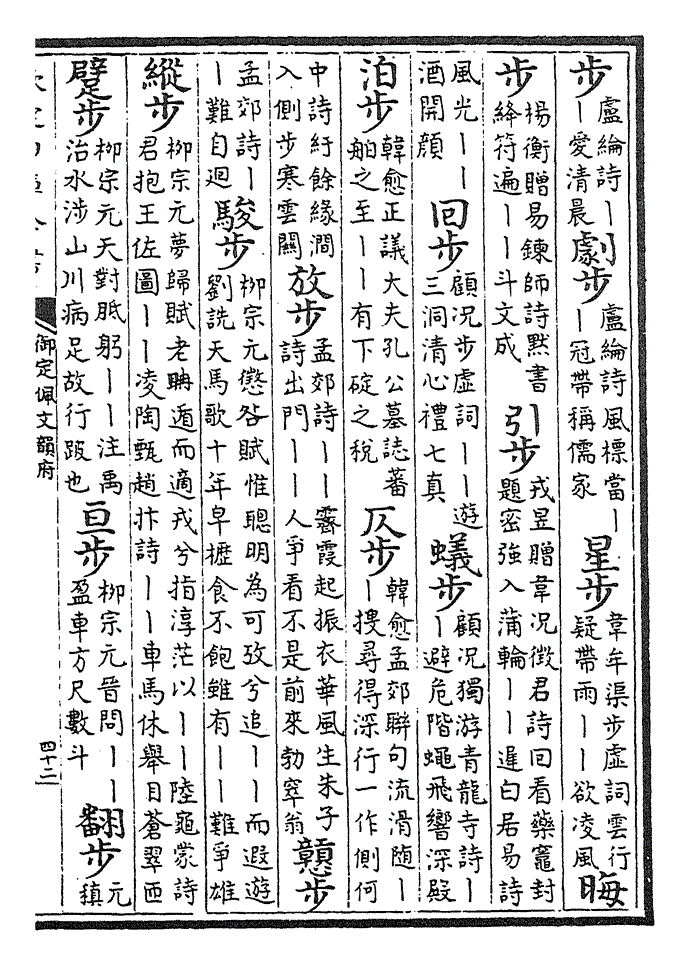 步盧綸詩丨丨愛清晨劇步盧綸詩風標當丨丨冠帶稱儒家星步韋年渠步虛詞雲行疑帶雨丨丨欲凌風晦
步楊衡贈易鍊師詩默書絳符遍丨丨斗文成引步戎昱贈韋況徵君詩回看藥竈封題密強入蒲輪丨丨遲白居易詩
風光丨丨酒開顔回步顧况步虛詞丨丨遊三洞清心禮七真蟻步顧況獨游青龍寺詩丨丨避危階蠅飛響深殿
泊步韓愈正議大夫孔公墓誌蕃舶之至丨丨有下碇之稅仄步韓愈孟郊聯句流滑随丨丨搜尋得深行一作側何
中詩紆餘緣澗入側步寒雲關放步孟郊詩丨丨霽霞起振衣華風生朱子詩出門丨丨丨人爭看不是前來勃窣翁戇步
孟郊詩丨丨難自迴駿步柳宗元懲咎賦惟聰明為可攷兮追丨丨而遐遊劉詵天馬歌十年皁櫪食不飽雖有丨丨難爭雄
縱步柳宗元夢歸賦老耼遁而適戎兮指淳茫以丨丨陸龜蒙詩君抱王佐圖丨丨凌陶甄趙抃詩丨丨車馬休舉目蒼翠西
躄步柳宗元天對胝躬丨丨注禹治水涉山川病足故行跛也亘步柳宗元晉問丨丨盈車方尺數斗翻步元稹
御定佩文韻府
四十二